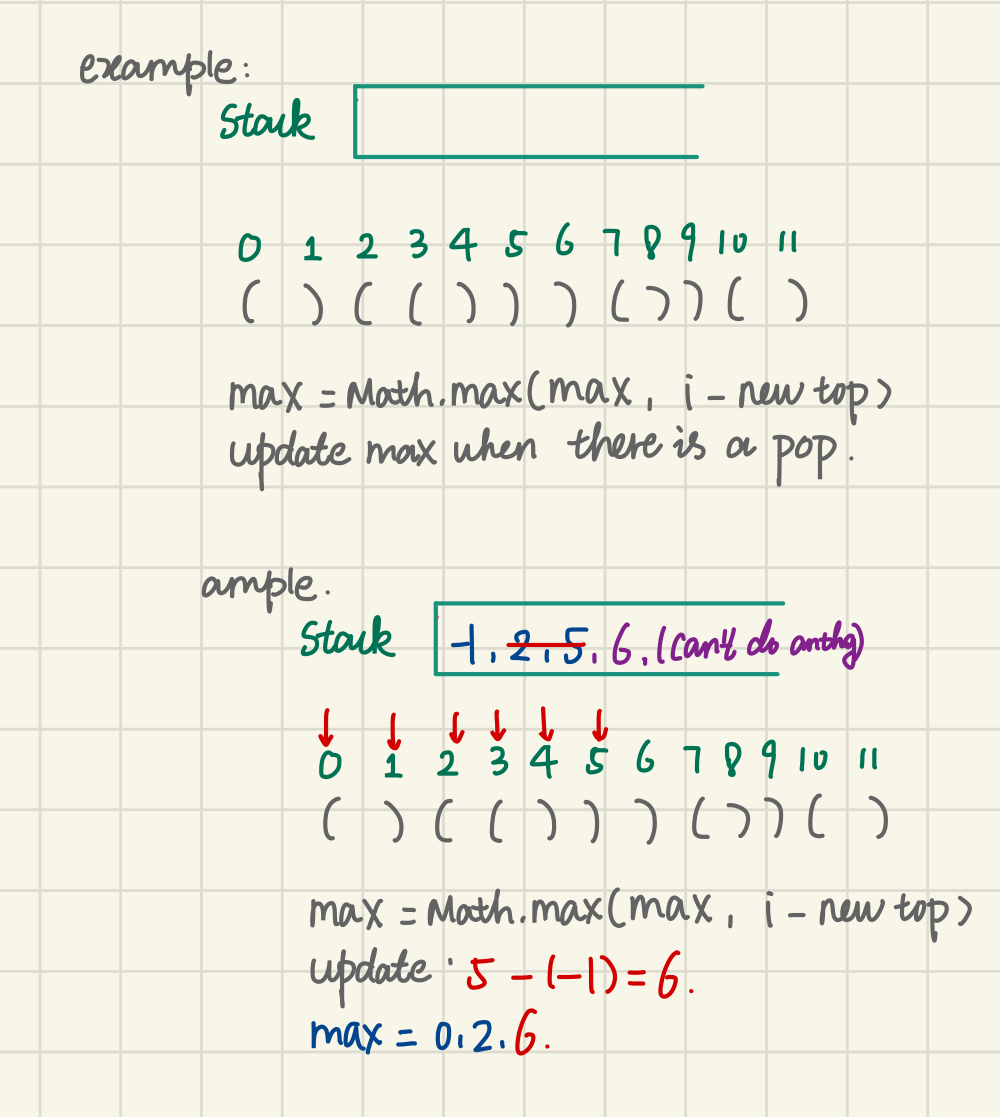 example:
Stack
0 1 2 3 4 5 6 7 8 9 10 11
( ) ( ( ) ) ) ( ) ) ( )
max = Math.max(max, i - new top)
update max when there is a pop.
ample.
Stack -1, 2, 5, 6, (can't do anthg)
0 1 2 3 4 5 6 7 8 9 10 11
( ) ( ( ) ) ) ( ) ) ( )
max = Math.max(max, i - new top)
update · 5 - (-1) = 6.
max = 0, 2, 6.